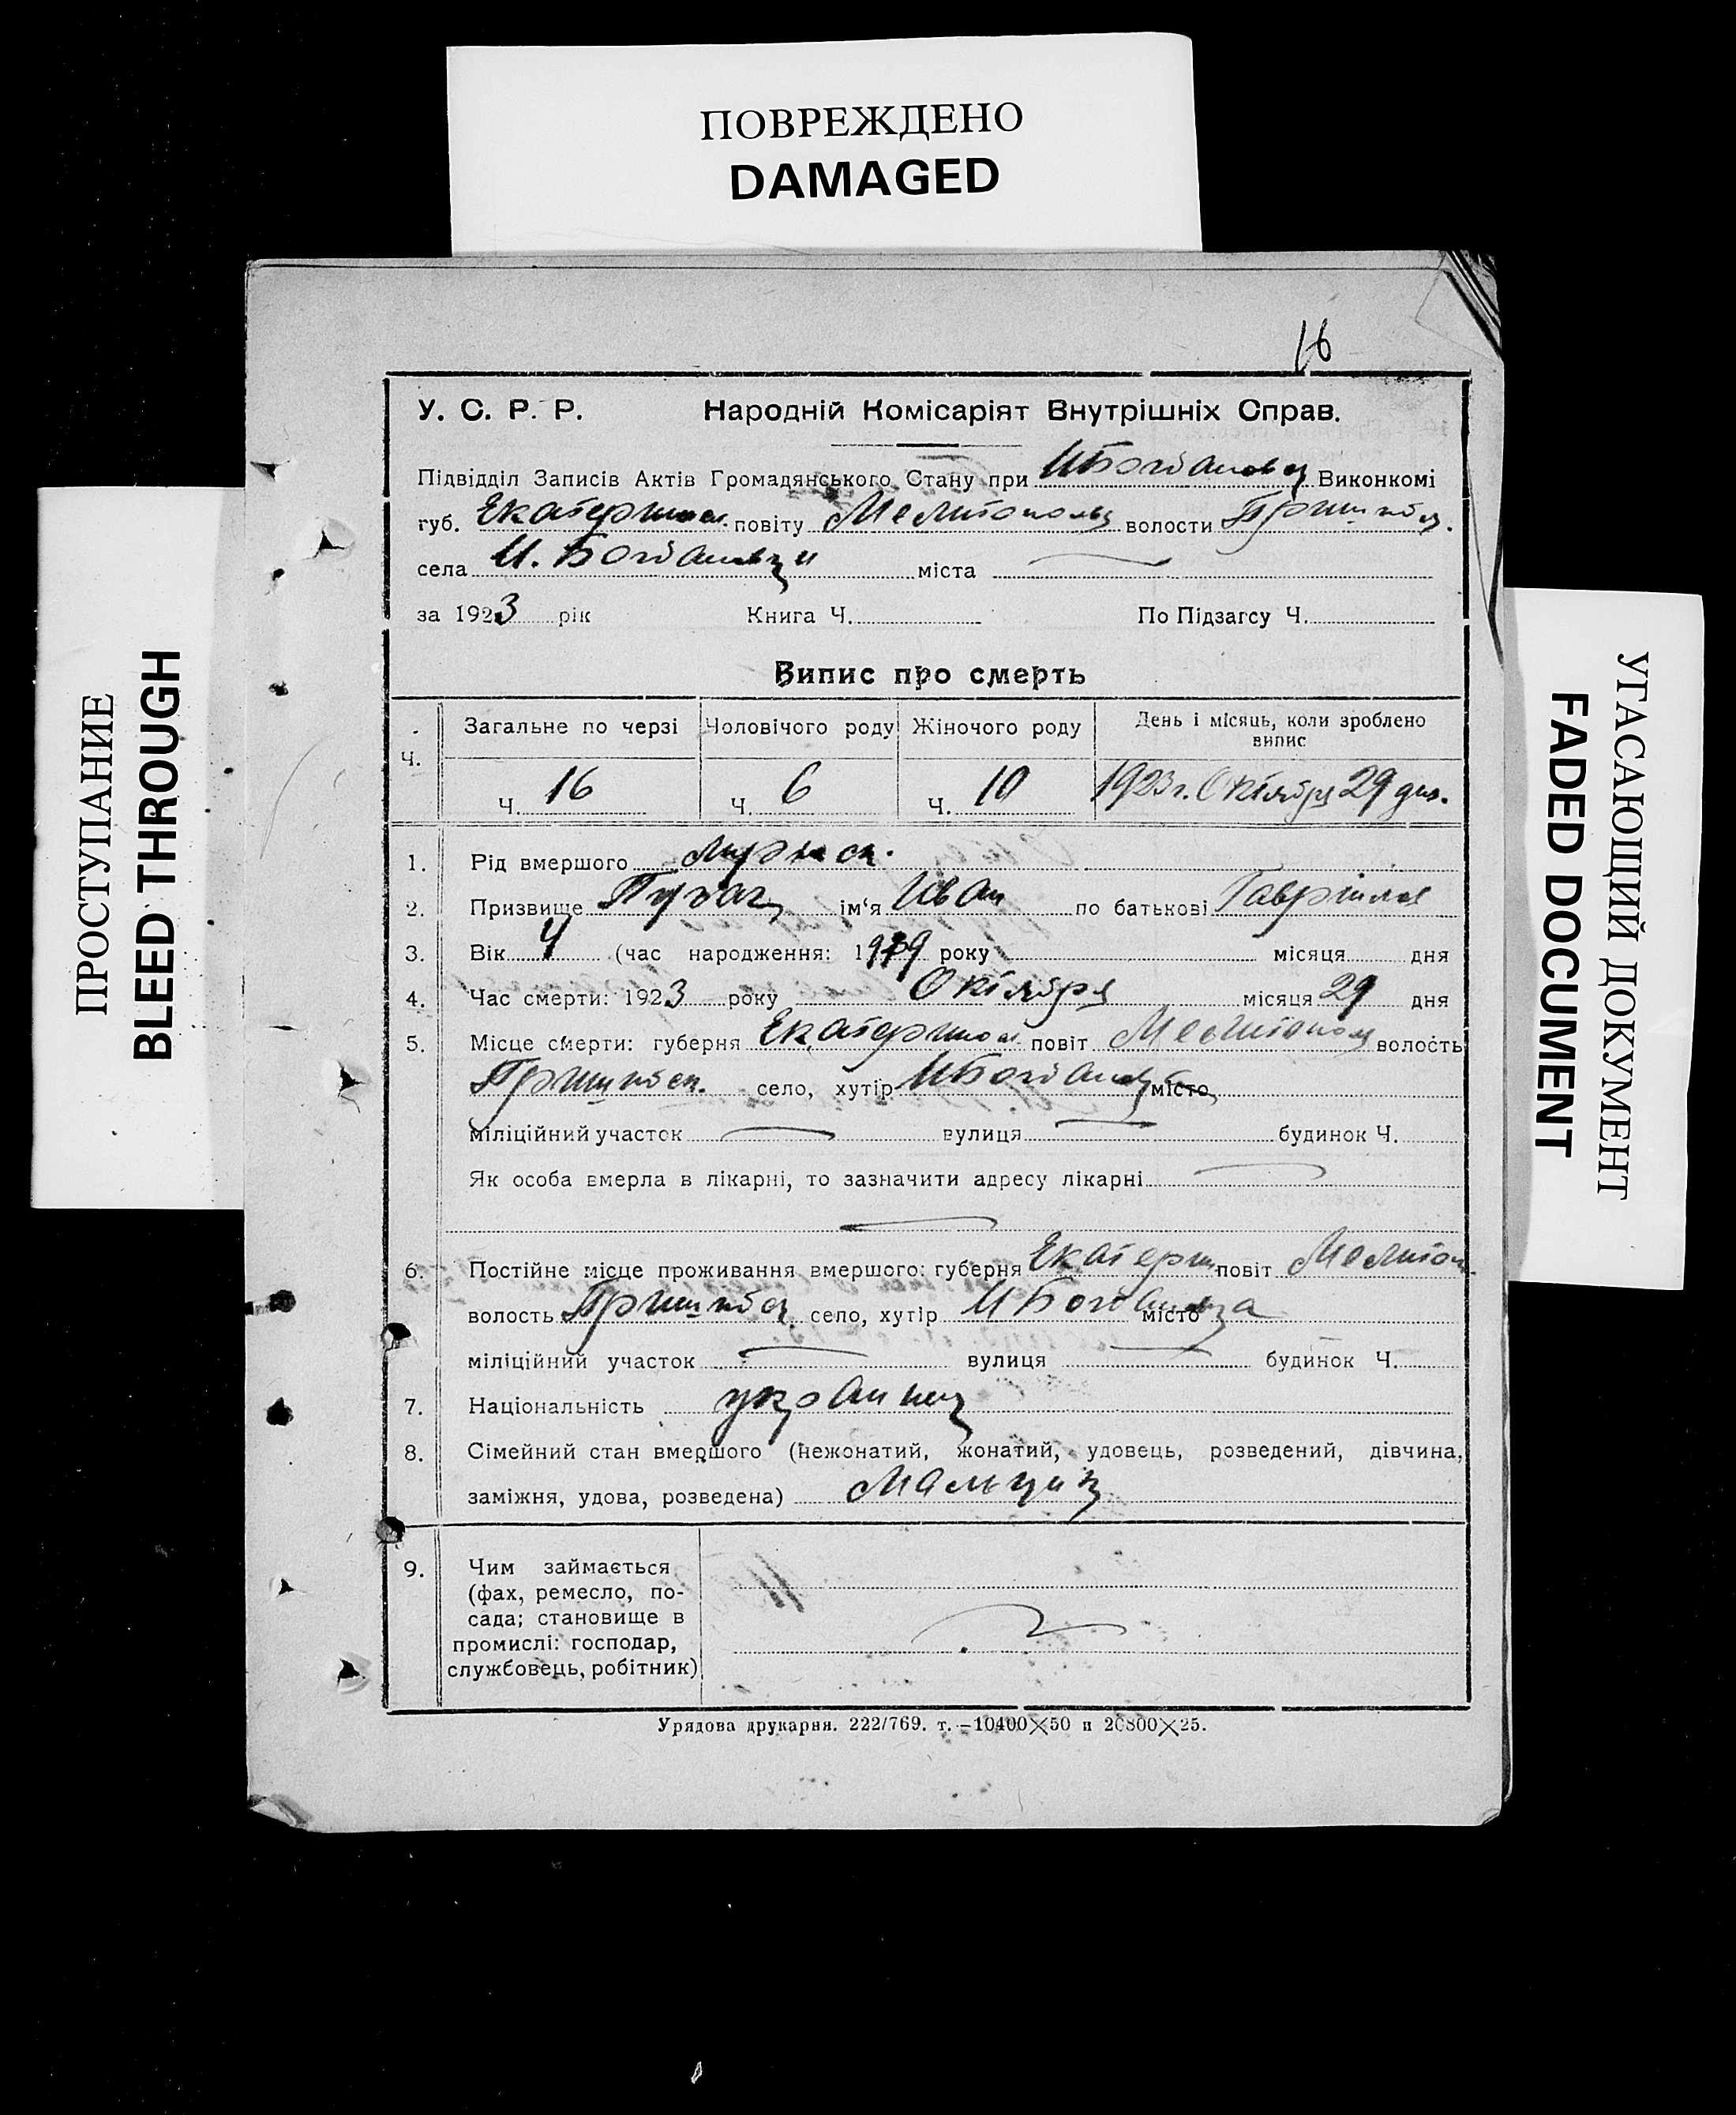 ПОВРЕЖДЕНО
DAMAGED
ПРОСТУПАНИЕ
BLEED THROUGH
УГАСАЮЩИЙ ДОКУМЕНТ
FADED DOCUMENT
16
У. С. Р. Р. Народній Комісаріят Внутрішніх Справ.
Підвідділ Записів Актів Громадянського Стану при Виконкомі
губ. Екатерин повіту Мелитопол волости Пришиб
села И. Богдановки міста
за 1923 рік Книга Ч. По Підзагсу Ч.
Випис про смерть
Ч. Загальне по черзі Чоловічого роду Жіночого роду День і місяць, коли зроблено випис
Ч. 16 Ч. 6 Ч. 10 1923 г. Октября 29 дня.
1. Рід вмершого мужск.
2. Призвище Пугач ім'я Иван по батькові Гаврилов
3. Вік 4 (час народження: 1919 року місяця дня
4. Час смерти: 1923 року Октября місяця 29 дня
5. Місце смерти: губерня Екатерин повіт Мелитопол волость
Пришибск. село, хутір місто
міліційний участок вулиця будинок Ч.
Як особа вмерла в лікарні, то зазначити адресу лікарні
6. Постійне місце проживання вмершого: губерня Екатерин повіт Мелитоп.
волость Пришиб село, хутір И Богдановка місто
міліційний участок вулиця будинок Ч.
7. Національність украинец
8. Сімейний стан вмершого (нежонатий, жонатий, удовець, розведений, дівчина,
заміжня, удова, розведена) Мальчик
9. Чим займається
(фах, ремесло, по-
сада; становище в
промислі: господар,
службовець, робітник)
Урядова друкарня. 222/769. т. —10400×50 и 20800×25.